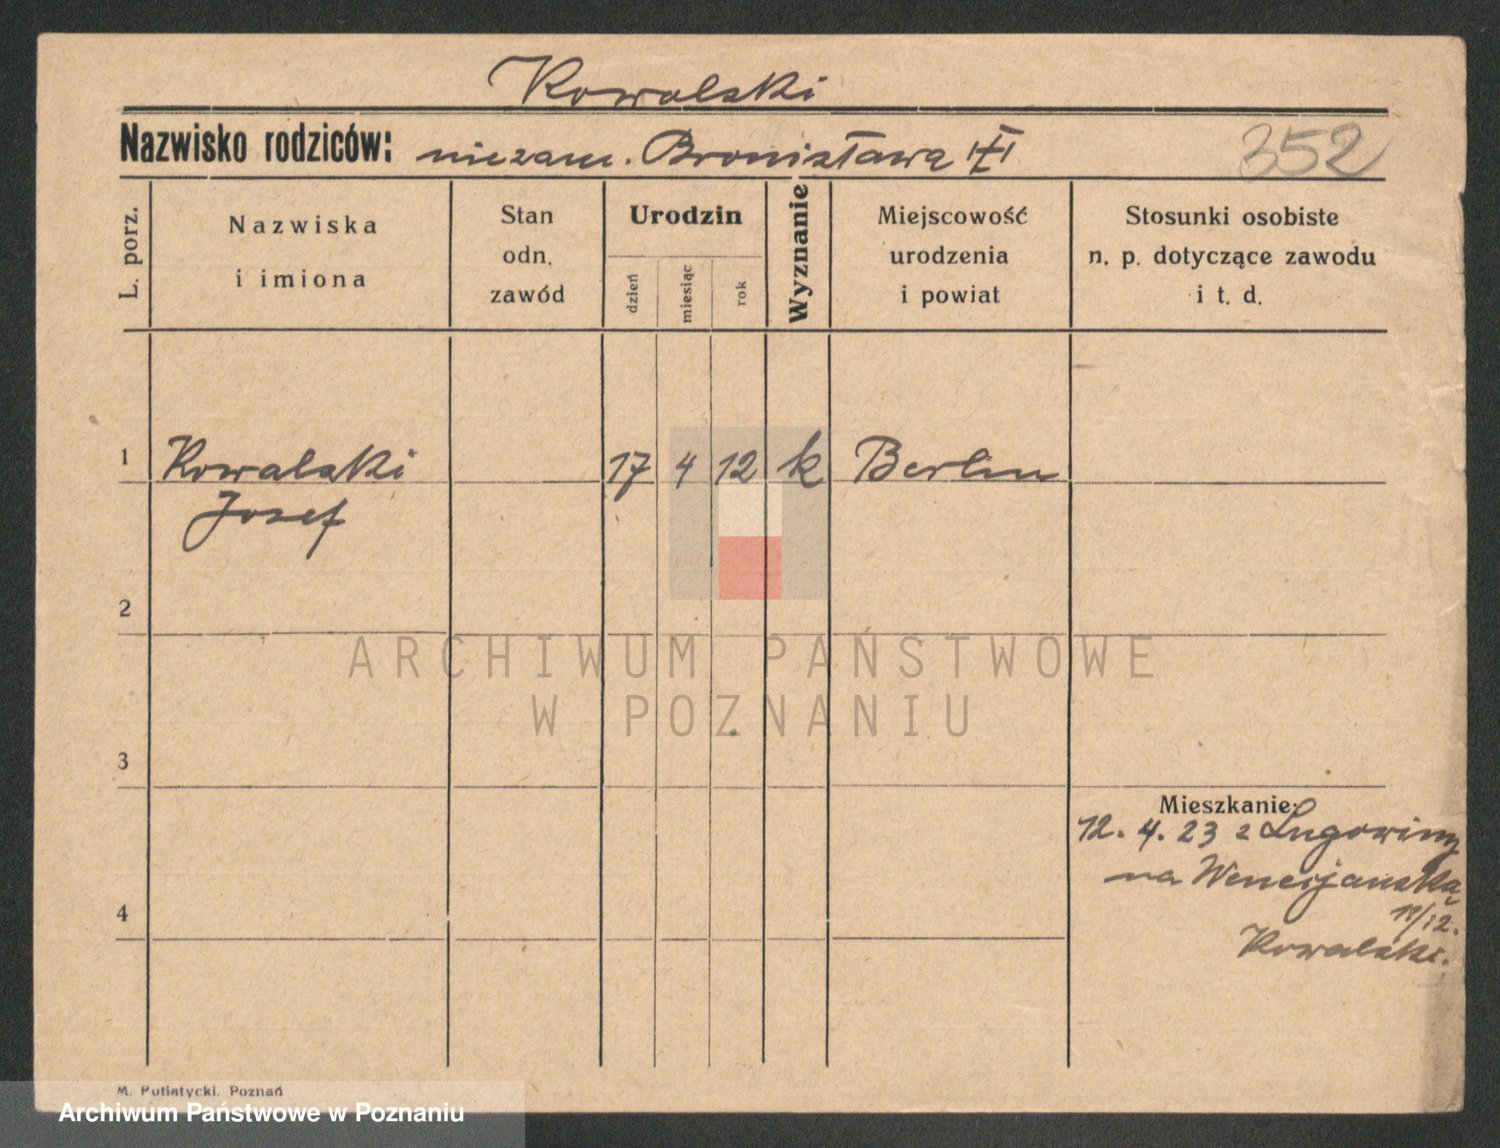 Kowalski
Nazwisko rodziców: niezam. Bronisława
352
L. porz.
Nazwiska
i imiona
Stan
odn.
zawód
Urodzin
dzień
miesiąc
rok
Wyznanie
Miejscowość
urodzenia
i powiat
Stosunki osobiste
n. p. dotyczące zawodu
i t. d.
1 Kowalski 17 4 12 k Berlin
Josef
2
3
4
Mieszkanie:
12. 4. 23 z Ługowiny
na Wenecjańską
11/12.
Kowalski.
ARCHIWUM PAŃSTWOWE
W POZNANIU
M. Putiatycki, Poznań
Archiwum Państwowe w Poznaniu